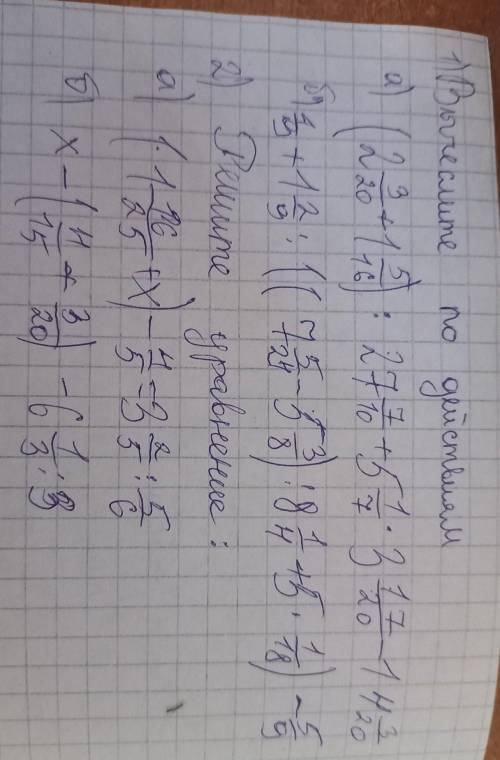 1) Вычеслите по действиям
а) (2 3/20 + 1 5/16) : 27 7/10 + 5 1/7 · 3 17/20 - 14 3/20
б) 4/9 + 1 2/9 : (( 7 5/24 - 5 3/8) : 8 1/4 + 5 · 1/18) - 5/9
2) Решите уравнение :
а) (1 16/25 + x) - 4/5 = 3 2/5 : 5/6
б) x - (4/15 + 3/20) - 6 1/3 : 3